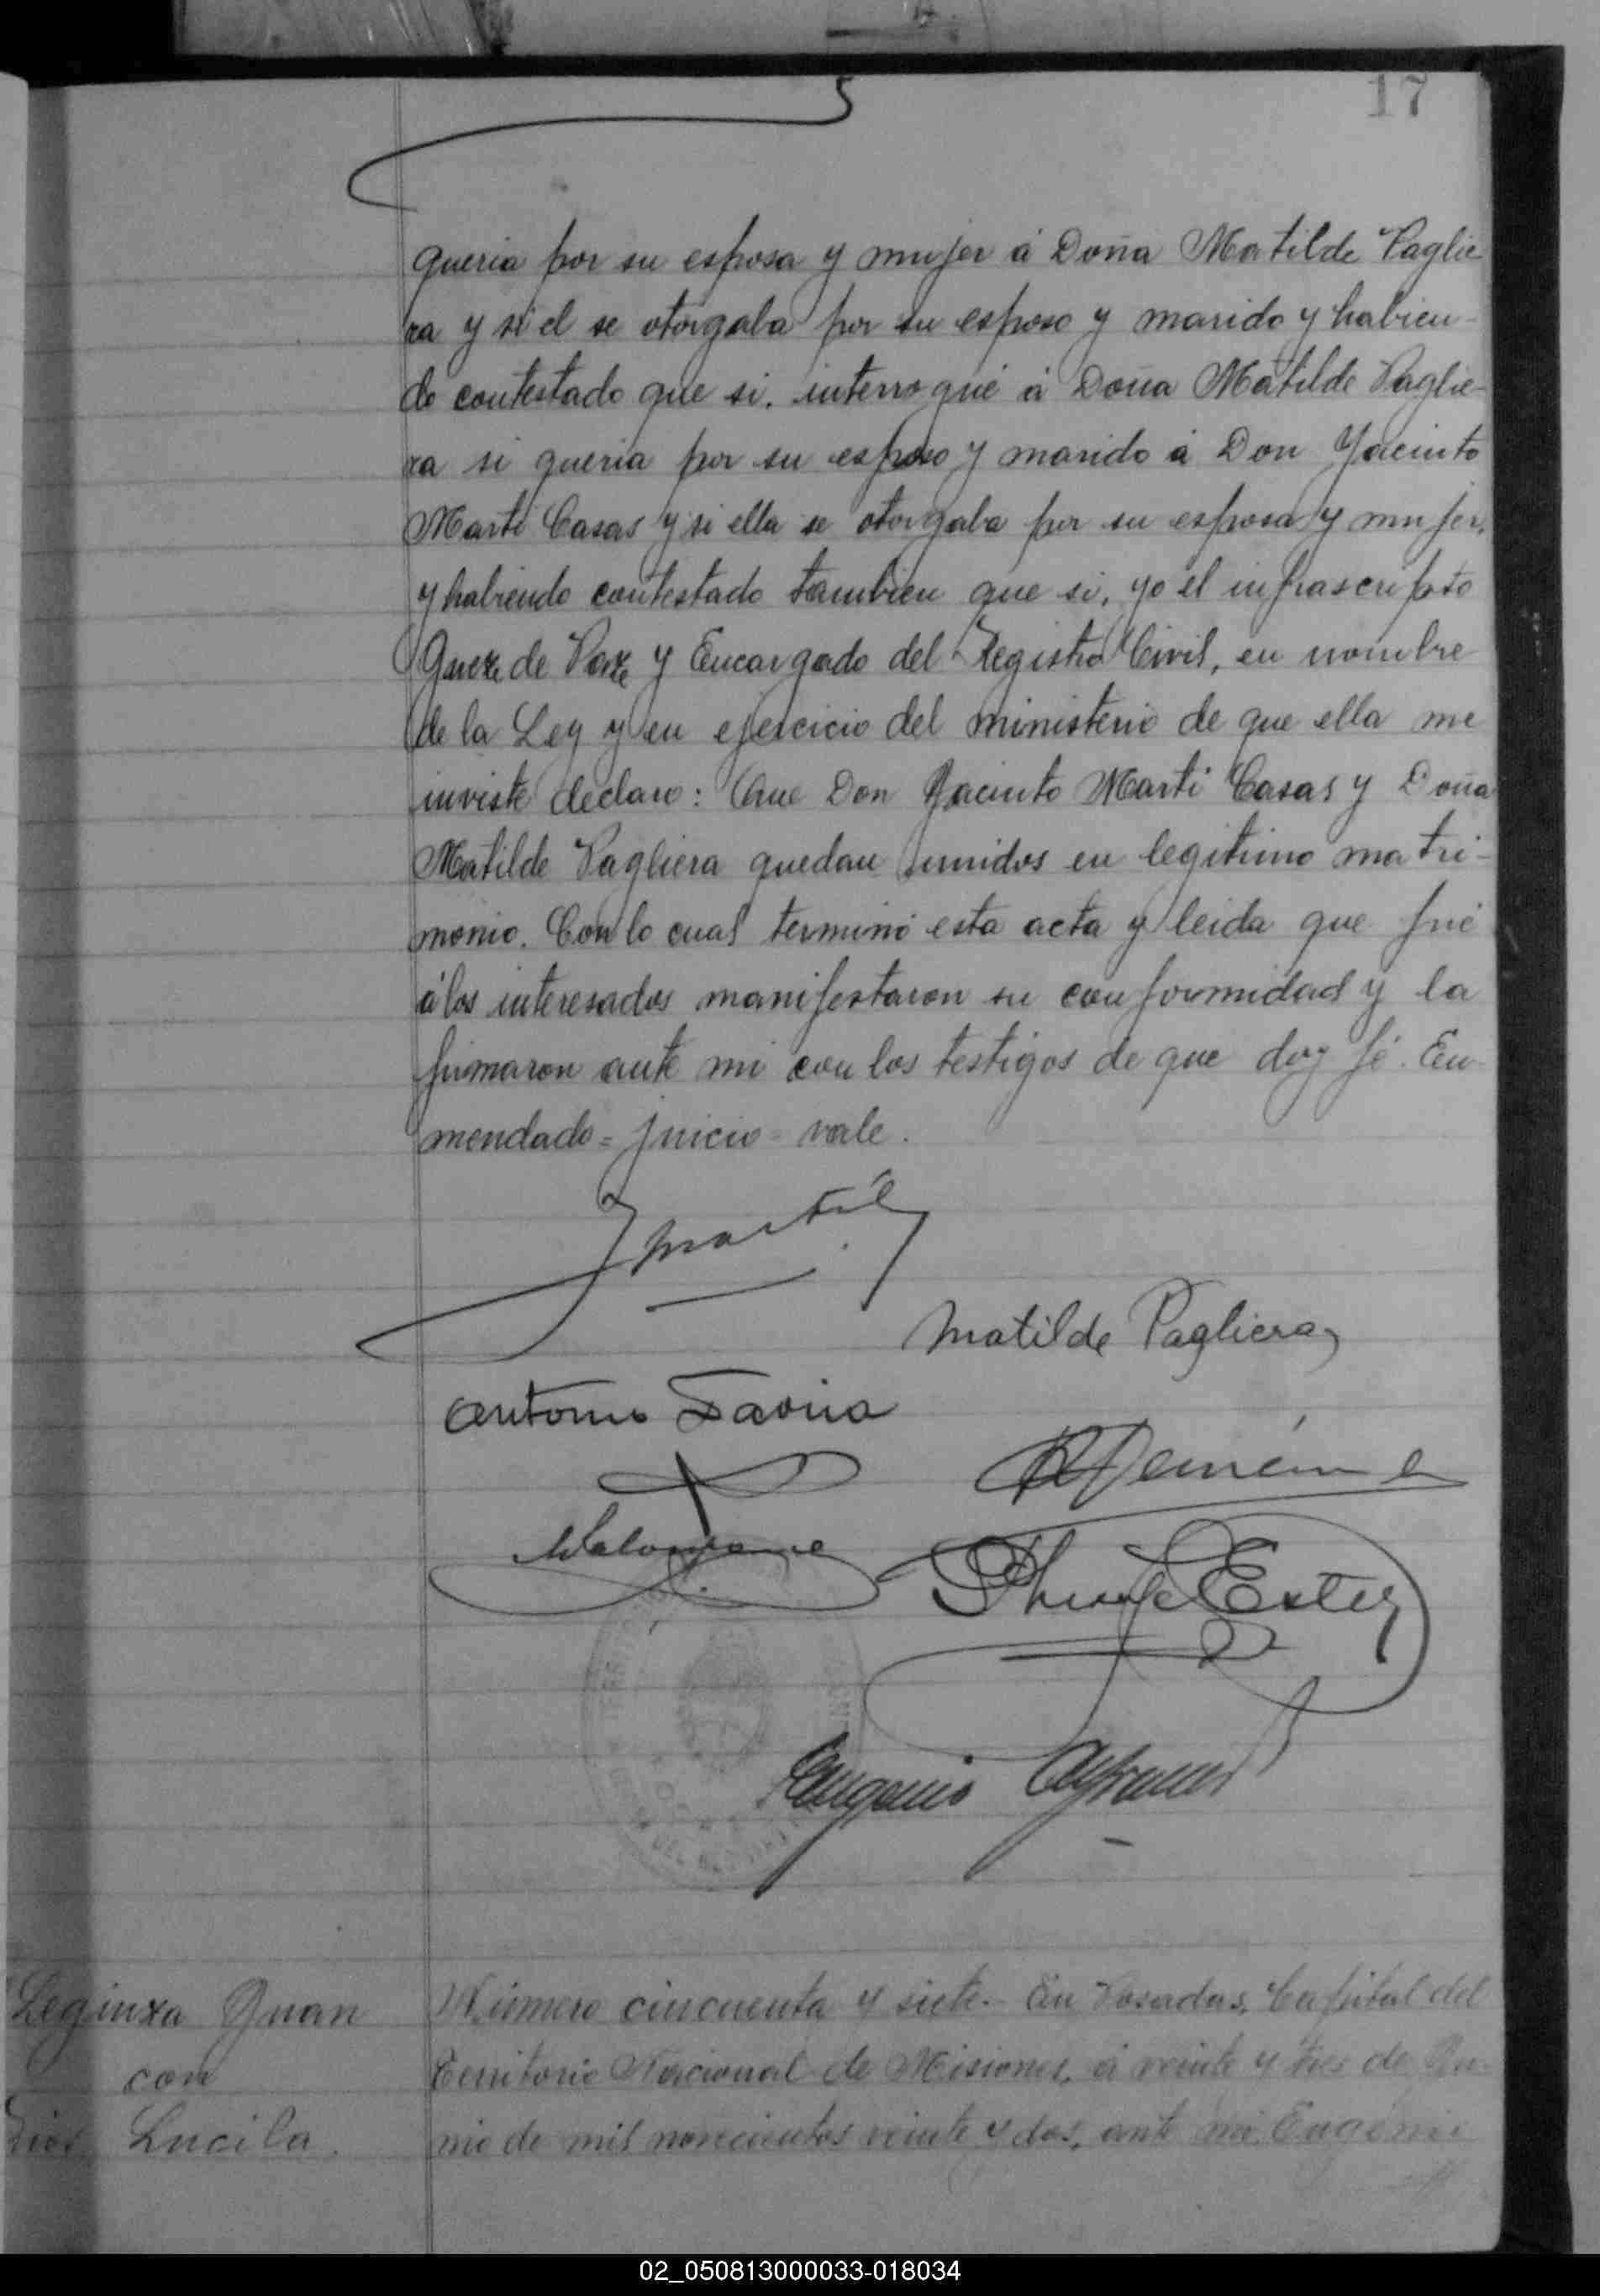 17
queria por su esposa y mujer á Doña Matilde Paglie
ra y si el se otorgaba por su esposo y marido y habien-
do contestado que si. interrogué á Doña Matilde Paglie-
ra si queria por su esposo y marido á Don Jacinto
Marti Casas y si ella se otorgaba por su esposa y mujer,
y habiendo contestado tambien que si, yo el infrascripto
Juez de Paz y Encargado del Registro Civil, en nombre
de la Ley y en ejercicio del ministerio de que ella me
inviste declaro: Que Don Jacinto Marti Casas y Doña
Matilde Pagliera quedan unidos en legitimo matri-
monio. Con lo cual terminó esta acta y leida que fué
á los interesados manifestaron su conformidad y la
firmaron ante mi con los testigos de que doy fé. En-
mendado = juicio = vale.
J Marti
Matilde Pagliera
Antonio
Eugenio
Leginza Juan
con
Lucila.
Número cincuenta y siete.- En Posadas, Capital del
Territorio Nacional de Misiones, á veinte y tres de Ju-
nio de mil novecientos veinte y dos, ante mi Eugenio
02_050813000033-018034